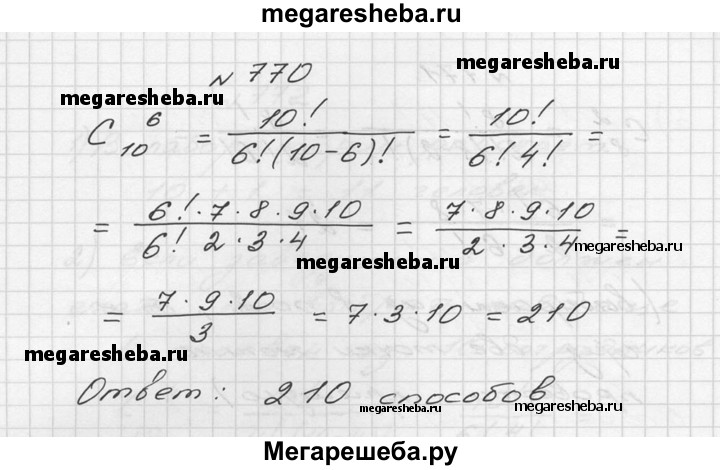 megaresheba.ru
№ 770
megaresheba.ru
megaresheba.ru
C₁₀⁶ = 10!/(6!(10-6)!) = 10!/(6!4!) =
= (6!·7·8·9·10)/(6! 2·3·4) = (7·8·9·10)/(2·3·4) =
megaresheba.ru
megaresheba.ru
= (7·9·10)/3 = 7·3·10 = 210
megaresheba.ru
Ответ: 210 способов
megaresheba.ru
megaresheba.ru
Мегарешеба.ру